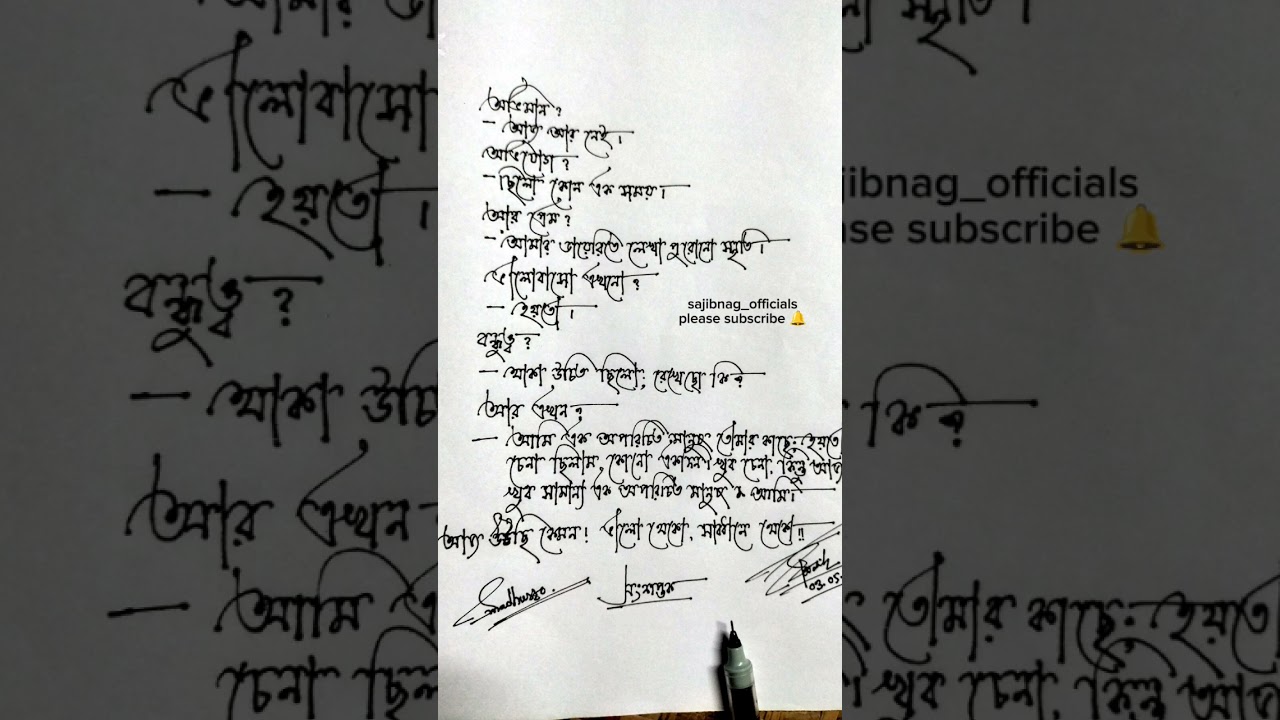 অভিমান?
- আজ আর নেই।
অভিযোগ?
- ছিলো কোন এক সময়।
আর প্রেম?
- আমার ডায়েরিতে লেখা পুরোনো স্মৃতি।
ভালোবাসো এখনো?
- হয়তো।
sajibnag_officials
please subscribe 🔔
বন্ধুত্ব?
- থাকা উচিত ছিলো; রেখেছো কি?
আর এখন?
- আমি এক অপরিচিত মানুষ তোমার কাছে; হয়তো
চেনা ছিলাম, কোনো একসময় খুব চেনা, কিন্তু আজ
খুব সামান্য এক অপরিচিত মানুষ আমি।
আজ উঠছি কেমন! ভালো থেকো, সাবধানে থেকো!!